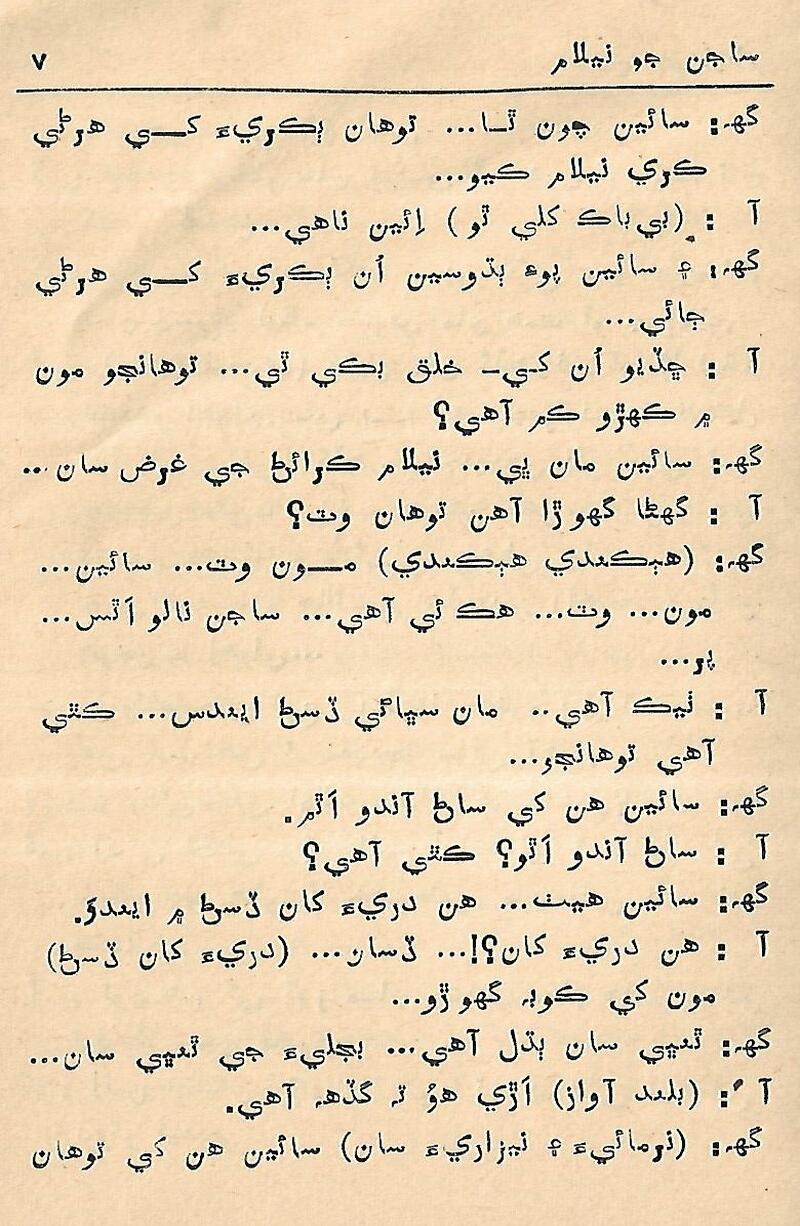 ساجن جو نيلام ٧
گهہ: سائين چون ٿا... توهان ٻڪريءَ کي هرڻي
ڪري نيلام ڪيو...
آ : (بي باڪ کلي ٿو) اِئين ناهي...
گهہ: ۽ سائين پوءِ ٻڌوسين اُن ٻڪريءَ کي هرڻي
ڄائي...
آ : ڇڏيو اُن کي۔ خلق بڪي ٿي... توهانجو مون
۾ ڪهڙو ڪم آهي؟
گهہ: سائين مان ڀي... نيلام ڪرائڻ جي غرض سان...
آ : گهڻا گهوڙا آهن توهان وٽ؟
گهہ: (هٻڪندي هٻڪندي) مون وٽ... سائين...
مون... وٽ... هڪ ئي آهي... ساجن نالو اَٿس...
پر...
آ : ٺيڪ آهي.. مان سڀاڻي ڏسڻ ايندس... ڪٿي
آهي توهانجو...
گهہ: سائين هن کي ساڻ آندو اَٿم.
آ : ساڻ آندو اَٿو؟ ڪٿي آهي؟
گهہ: سائين هيٺ... هن دريءَ کان ڏسڻ ۾ ايندوَ.
آ : هن دريءَ کان؟!... ڏسان... (دريءَ کان ڏسڻ)
مون کي ڪوبہ گهوڙو...
گهہ: ٿنڀي سان ٻڌل آهي... بجليءَ جي ٿنڀي سان...
آ : (بلند آواز) اَڙي هوُ تہ گڏهہ آهي.
گهہ: (نرمائيءَ ۽ نيزاريءَ سان) سائين هن کي توهان